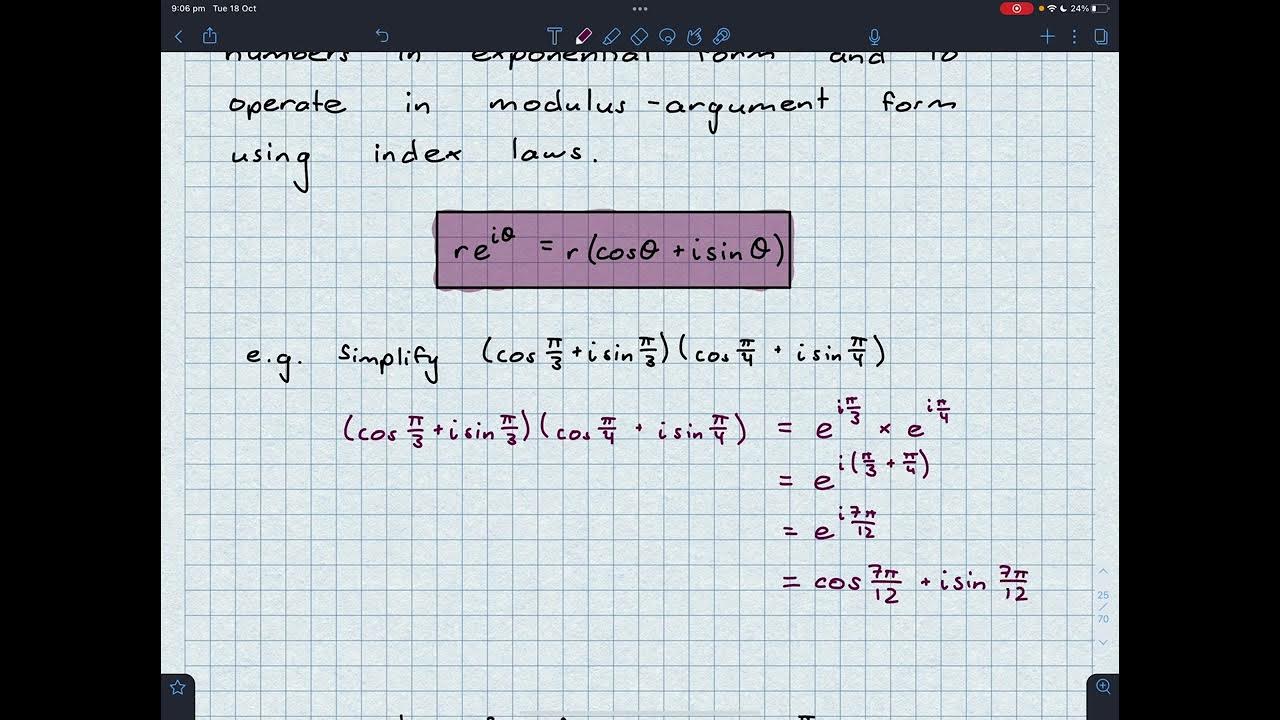 9:06 pm Tue 18 Oct 24%
numbers in exponential form and to
operate in modulus-argument form
using index laws.
re^{iθ} = r(cosθ + i sin θ)
e.g. Simplify (cos π/3 + i sin π/3)(cos π/4 + i sin π/4)
(cos π/3 + i sin π/3)(cos π/4 + i sin π/4) = e^{iπ/3} × e^{iπ/4}
= e^{i(π/3 + π/4)}
= e^{i7π/12}
= cos 7π/12 + i sin 7π/12
25
/
70